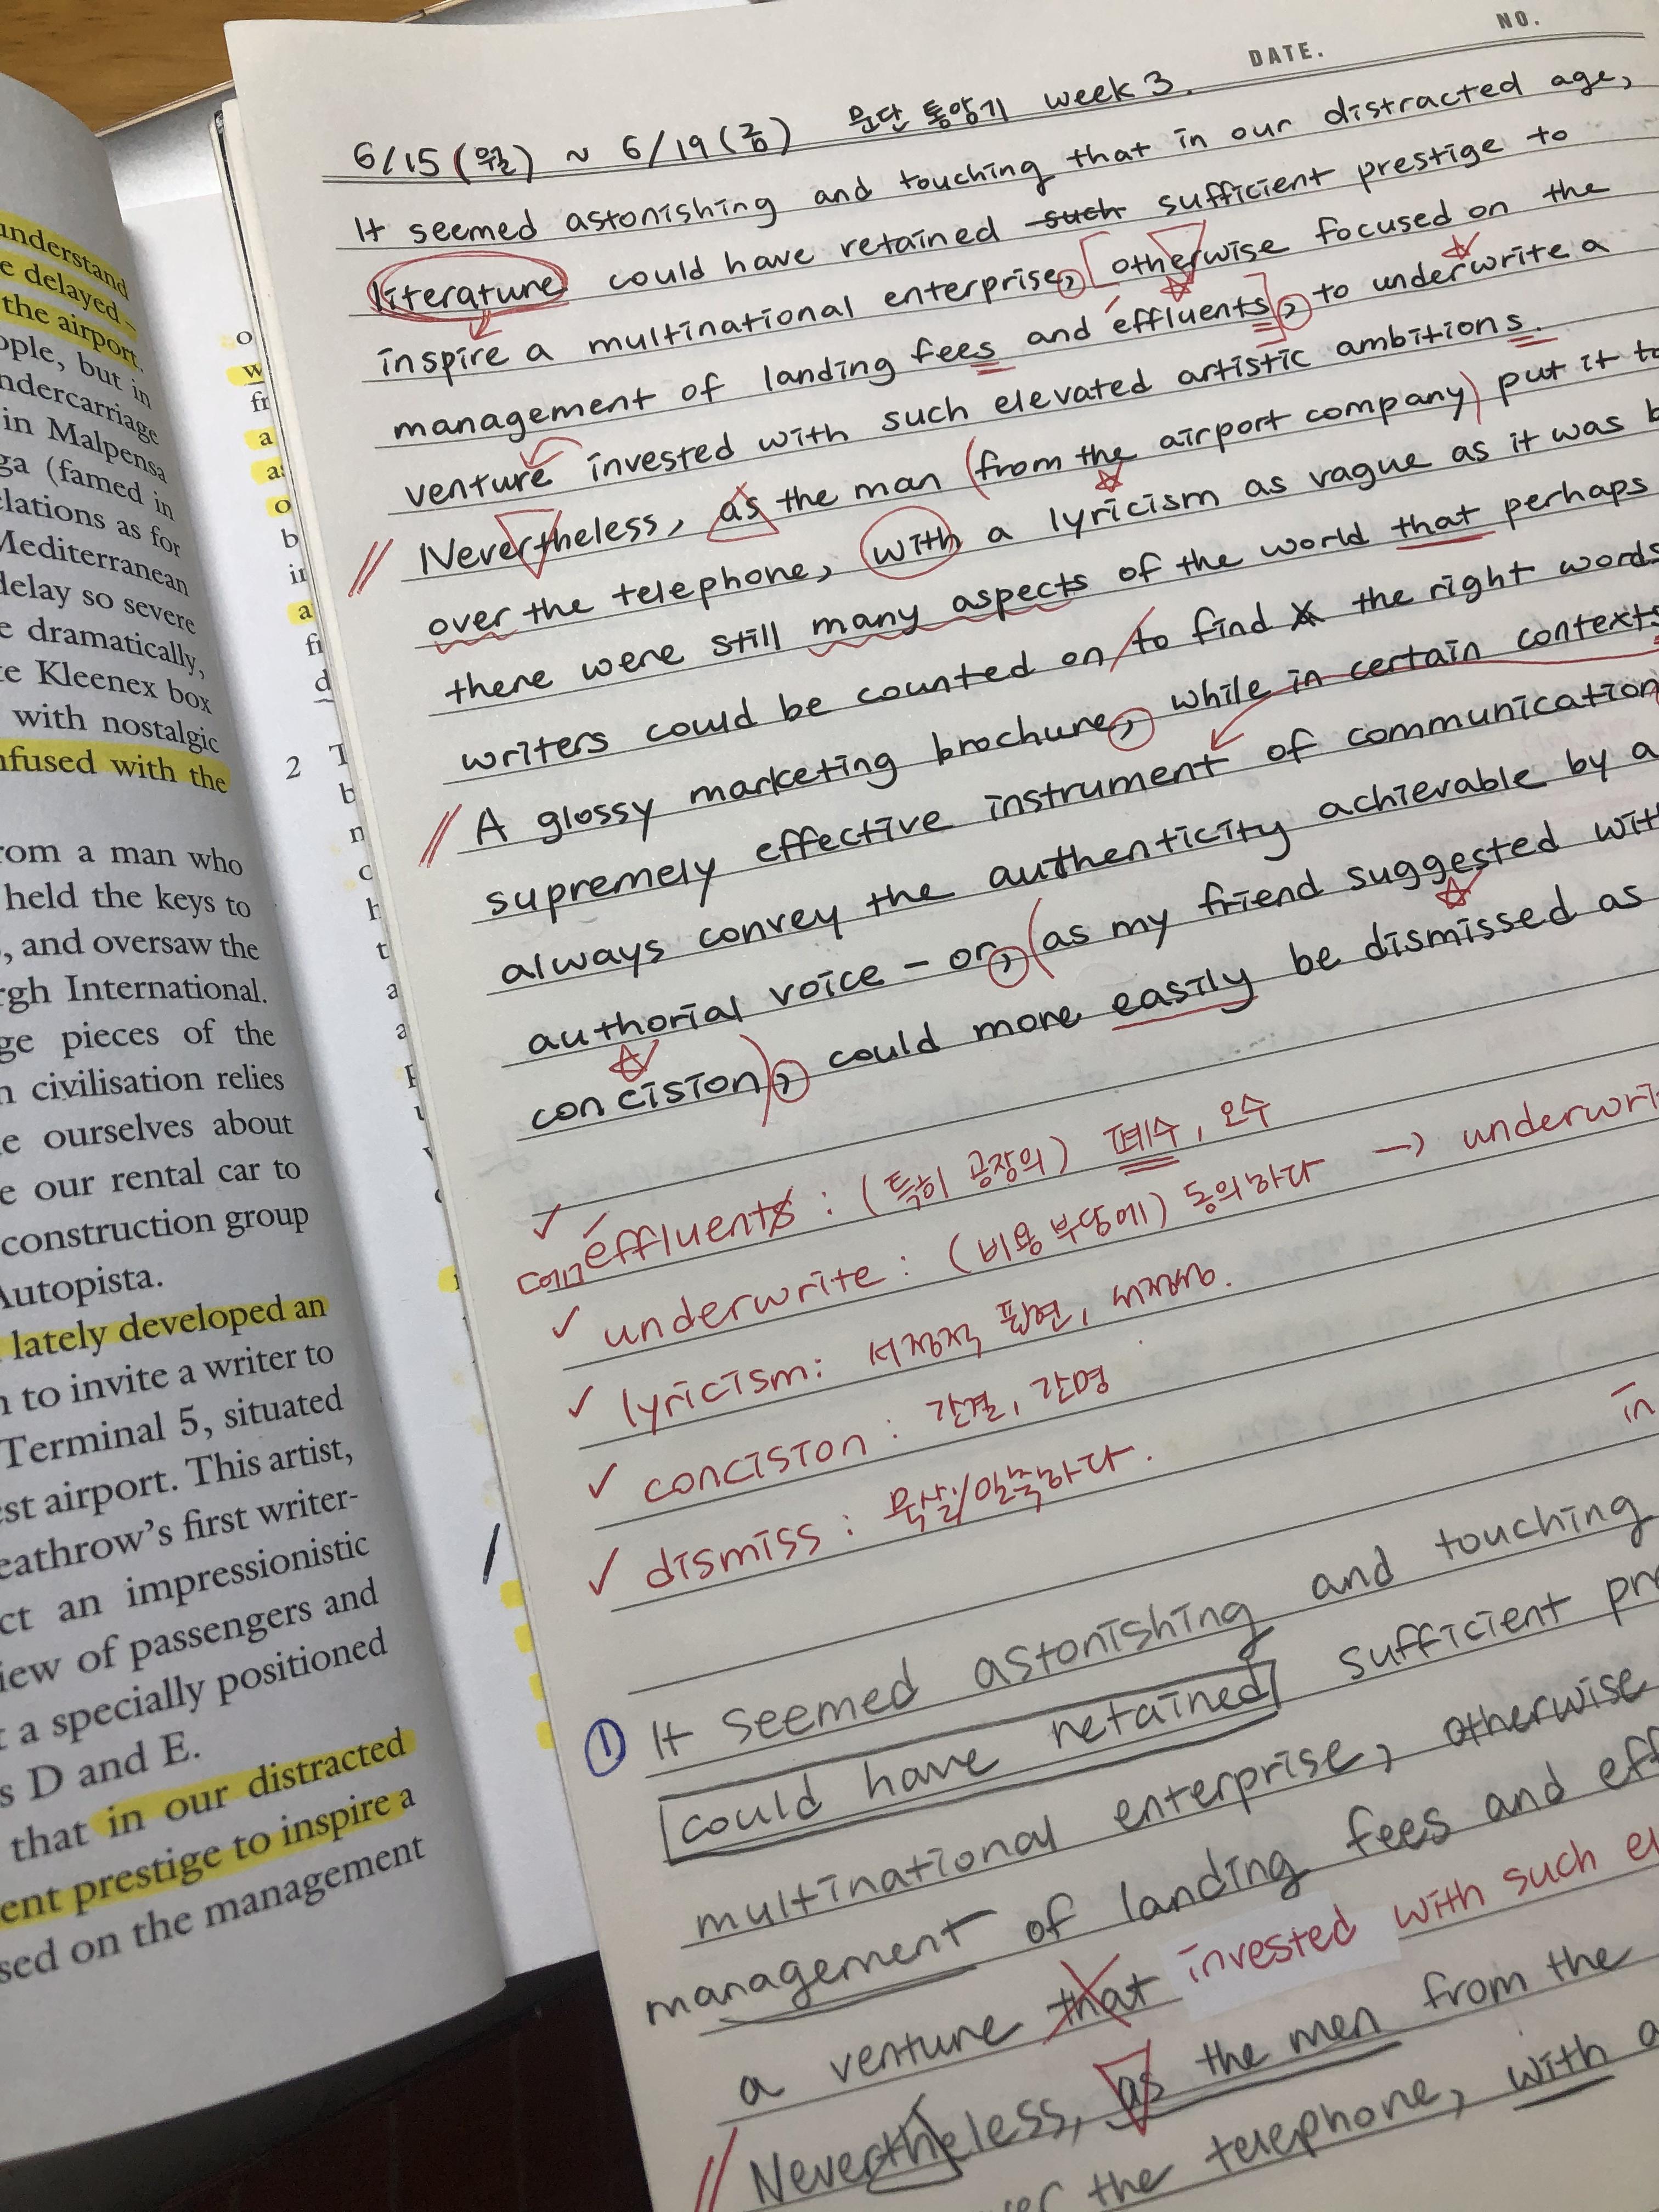 understand
e delayed –
the airport.
ople, but in
ndercarriage
in Malpensa
ga (famed in
elations as for
Mediterranean
delay so severe
e dramatically,
te Kleenex box
with nostalgic
nfused with the
rom a man who
held the keys to
, and oversaw the
rgh International.
ge pieces of the
n civilisation relies
e ourselves about
e our rental car to
construction group
Autopista.
lately developed an
n to invite a writer to
Terminal 5, situated
st airport. This artist,
eathrow's first writer-
ct an impressionistic
iew of passengers and
t a specially positioned
s D and E.
that in our distracted
ent prestige to inspire a
sed on the management
2
NO.
DATE.
6/15 (월) ~ 6/19 (금) 문단 통암기 week 3.
It seemed astonishing and touching that in our distracted age,
literature could have retained such sufficient prestige to
inspire a multinational enterprise, [otherwise focused on the
management of landing fees and effluents], to underwrite a
venture invested with such elevated artistic ambitions.
// Nevertheless, as the man (from the airport company) put it to
over the telephone, with a lyricism as vague as it was b
there were still many aspects of the world that perhaps
writers could be counted on / to find the right words
// A glossy marketing brochure, while in certain contexts
supremely effective instrument of communication
always convey the authenticity achievable by a
authorial voice – or, (as my friend suggested wit
concision), could more easily be dismissed as
✓ effluents : (특히 공장의) 폐수, 오수
✓ underwrite : (비용 부담에) 동의하다 → underwri
✓ lyricism : 서정적 표현, 서정성.
✓ concision : 간결, 간명
✓ dismiss : 묵살/일축하다.
in
① It seemed astonishing and touching
could have retained sufficient pr
multinational enterprise, otherwise
management of landing fees and eff
a venture that invested with such el
// Nevertheless, as the men from the
the telephone, with a